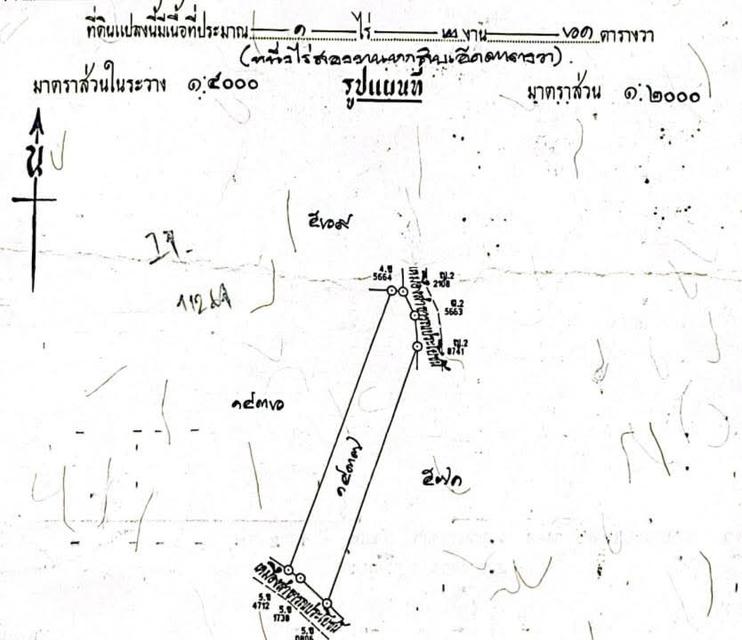 ที่ดินแปลงนี้มีเนื้อที่ประมาณ ๑ ไร่ ๒ งาน ๖๑ ตารางวา
(หนึ่งไร่สองงานหกสิบเอ็ดตารางวา)
มาตราส่วนในระวาง ๑:๔๐๐๐ รูปแผนที่ มาตราส่วน ๑:๒๐๐๐
น
๕๖๙
5664
2108
5663
8741
เหมืองสาธารณประโยชน์
๑๔๓๖
๑๔๓๗
๕๗๑
เหมืองสาธารณประโยชน์
4712
1738